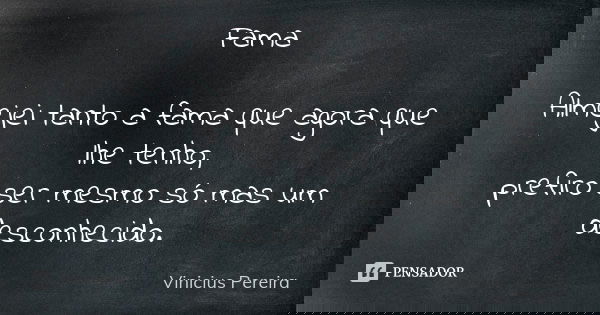 Fama
Almejei tanto a fama que agora que
lhe tenho,
prefiro ser mesmo só mas um
desconhecido.
Vinicius Pereira
PENSADOR